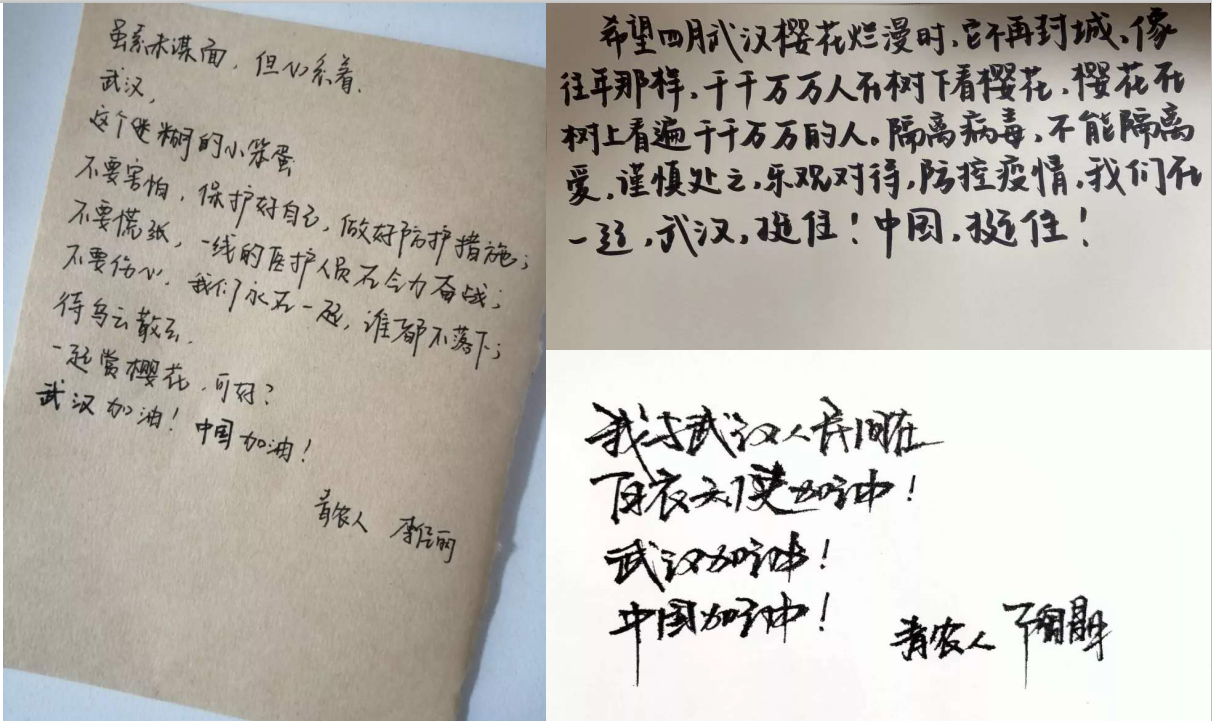 虽素未谋面，但心系着，
武汉，
这个迷糊的小笨蛋
不要害怕，保护好自己，做好防护措施；
不要慌张，一线的医护人员在全力奋战；
不要伤心，我们永在一起，谁都不落下；
待乌云散去，
一起赏樱花，可好？
武汉加油！中国加油！
青农人 李
希望四月武汉樱花烂漫时，它不再封城，像
往年那样，千千万万人在树下看樱花，樱花在
树上看遍千千万万的人。隔离病毒，不能隔离
爱，谨慎处之，乐观对待，防控疫情，我们在
一起，武汉，挺住！中国，挺住！
我与武汉人民同在
白衣天使加油！
武汉加油！
中国加油！
青农人